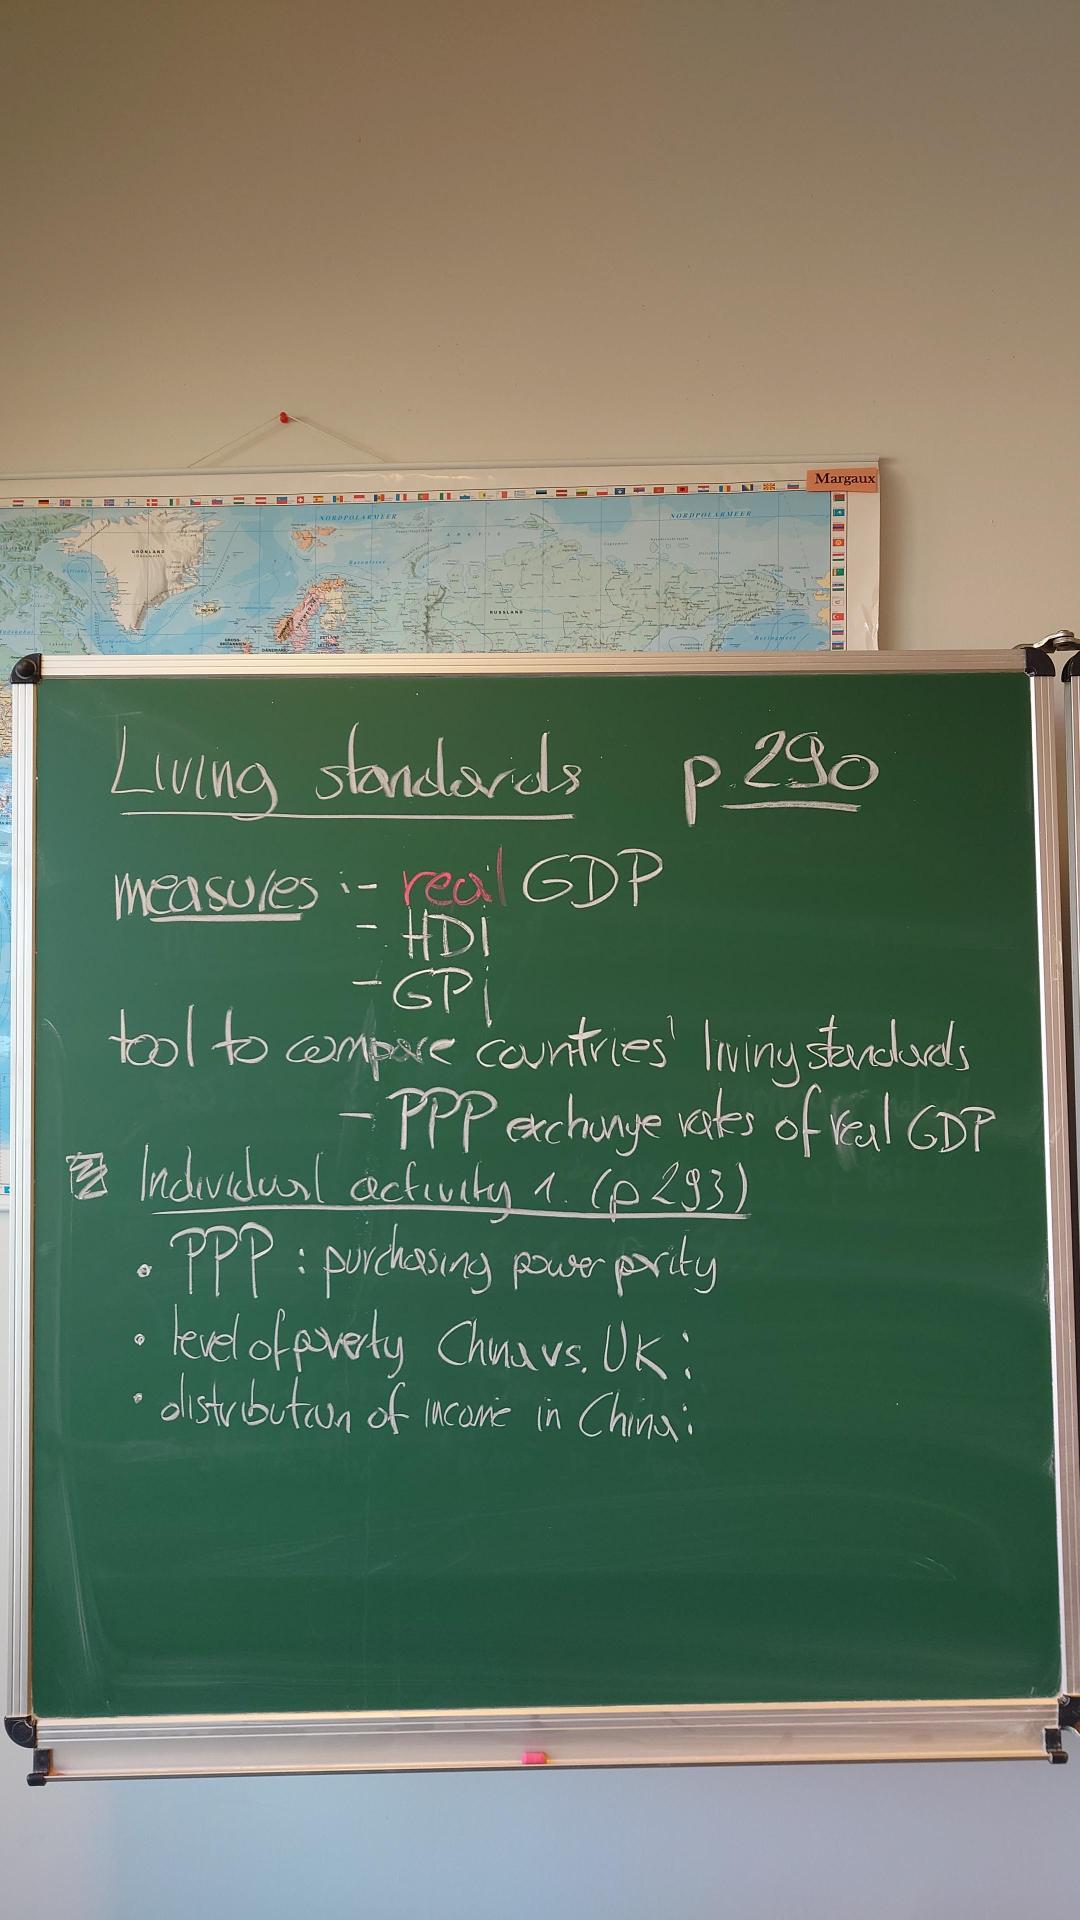 Margaux
NORDPOLARMEER
NORDPOLARMEER
GRÖNLAND
RUSSLAND
Living standards p. 290
measures :- real GDP
- HDi
- GPi
tool to compare countries' living standards
- PPP exchange rates of real GDP
Individual activity 1. (p 293)
• PPP : purchasing power parity
• level of poverty China vs. UK:
• distribution of income in China: